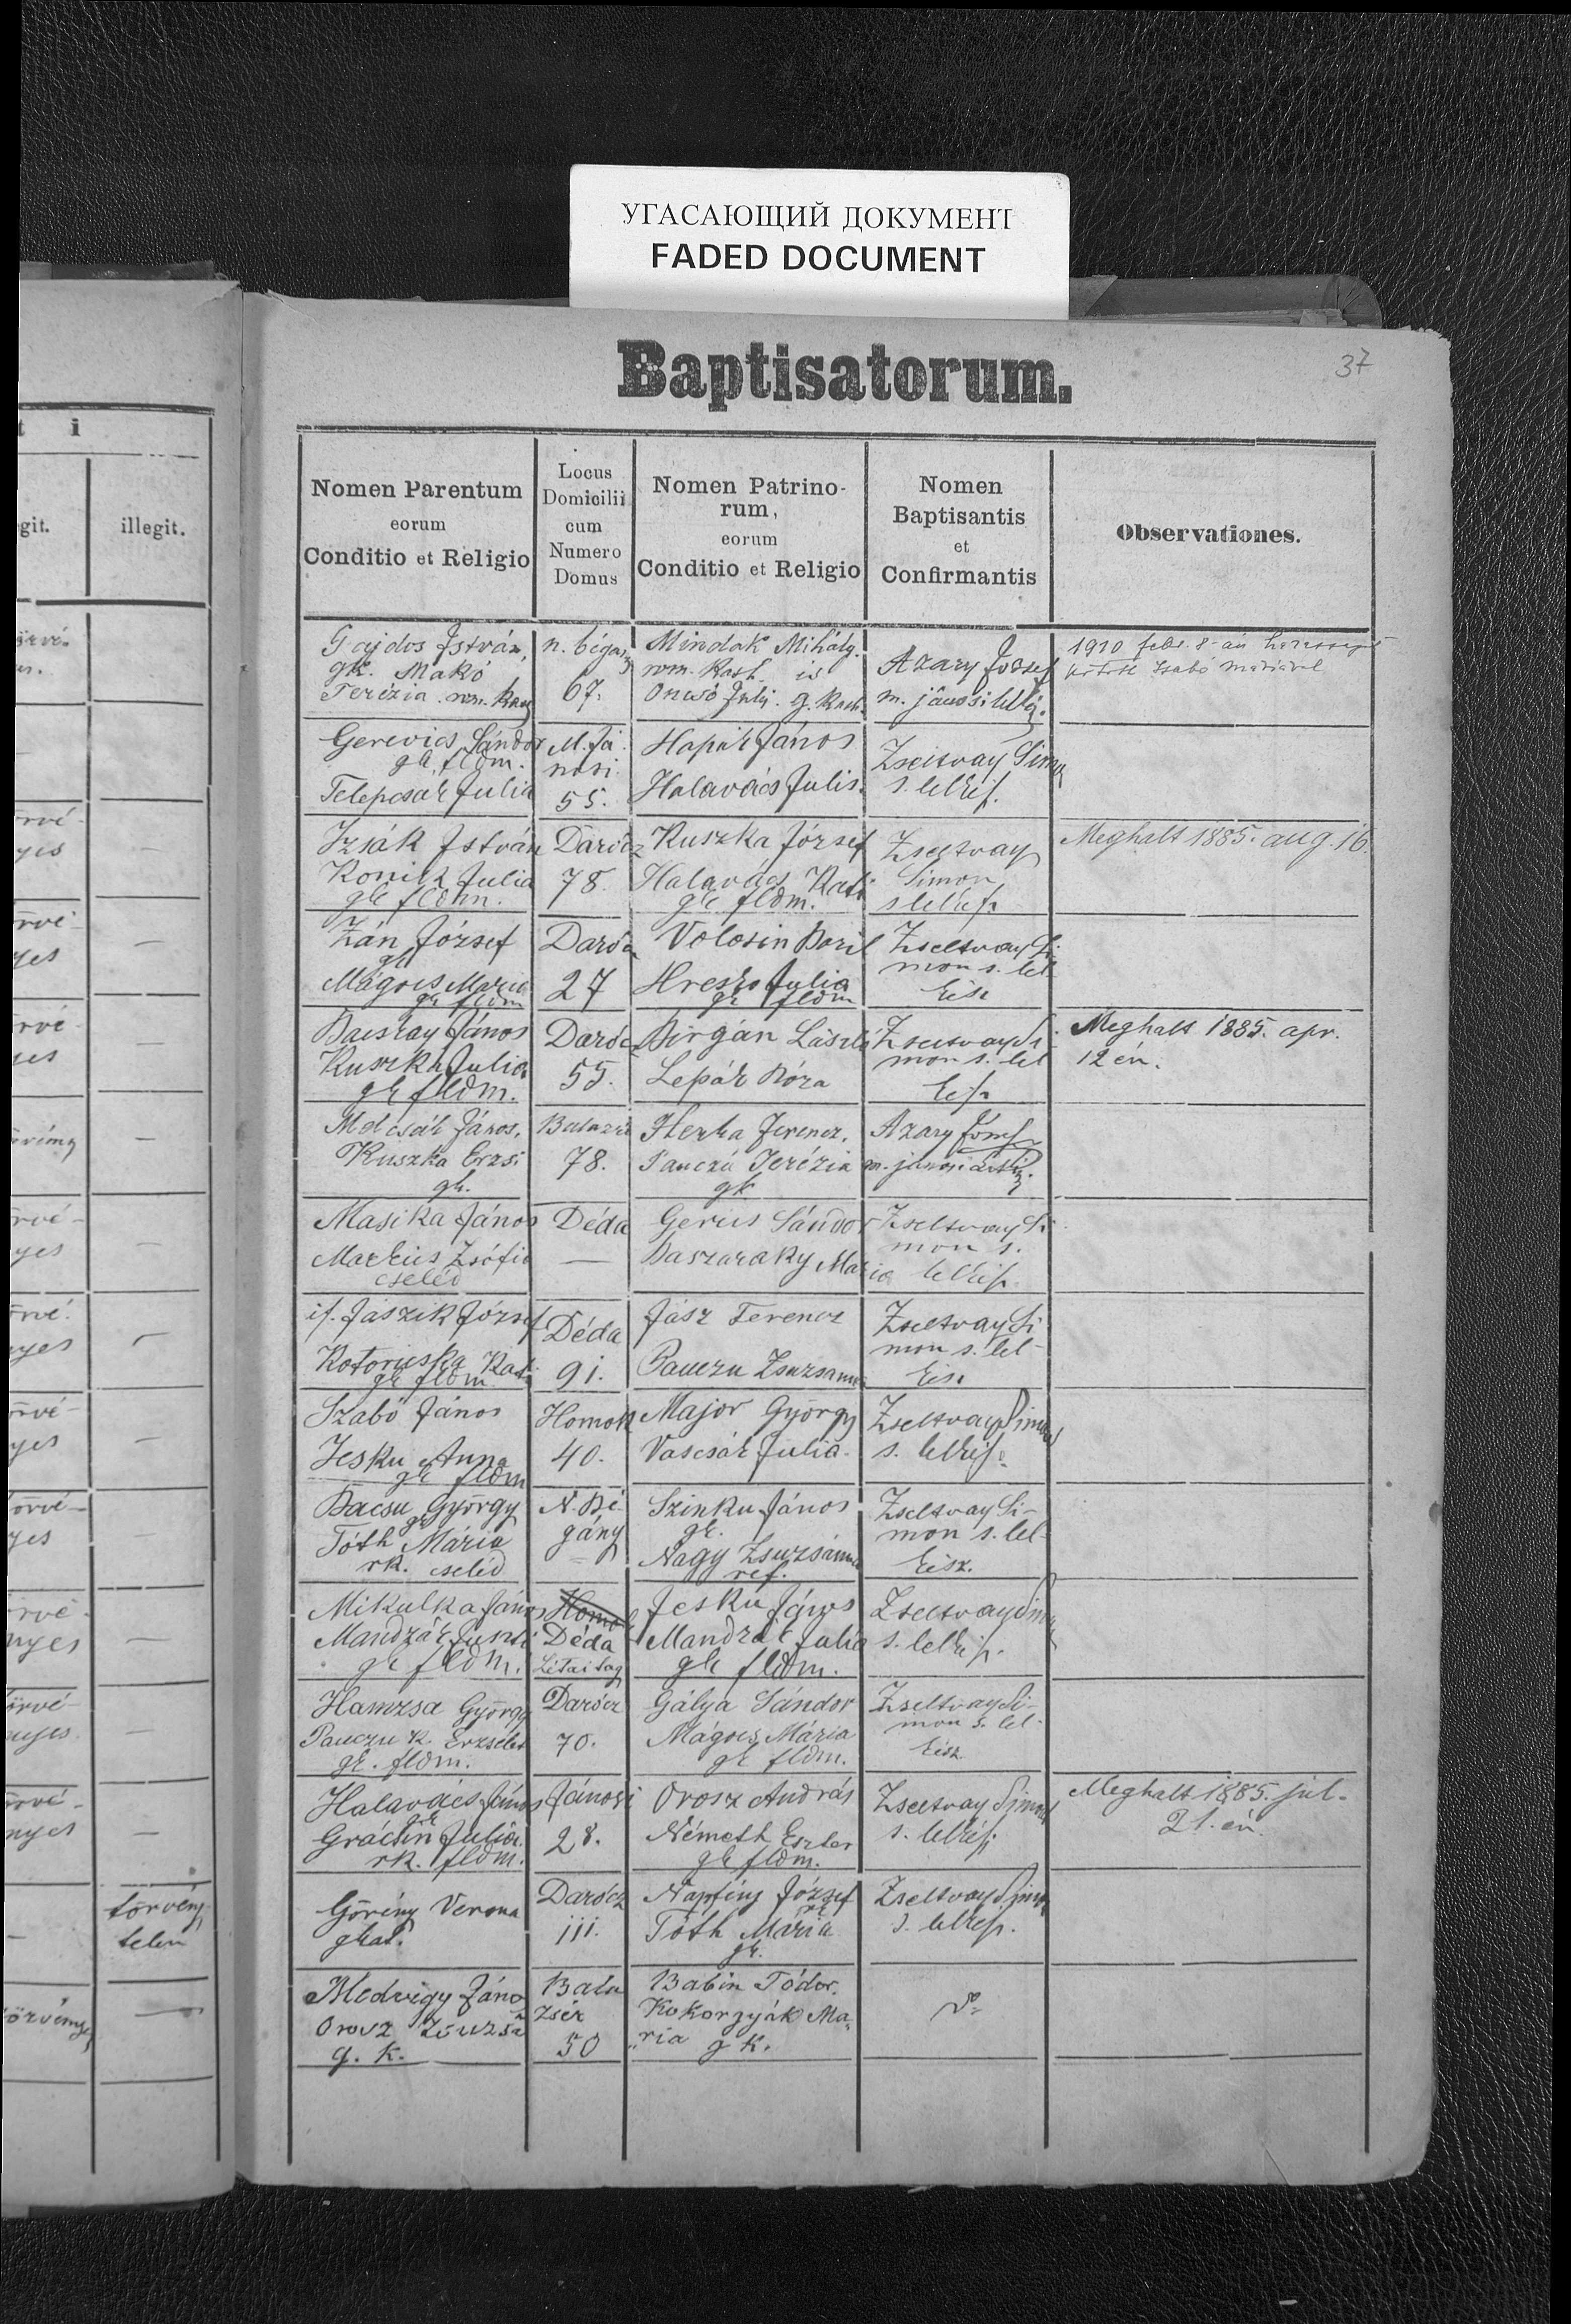 УГАСАЮЩИЙ ДОКУМЕНТ
FADED DOCUMENT
Baptisatorum.
37
t i
egit.
illegit.
törvény
telen
Nomen Parentum
eorum
Conditio et Religio
Locus
Domicilii
cum
Numero
Domus
Nomen Patrino-
rum,
eorum
Conditio et Religio
Nomen
Baptisantis
et
Confirmantis
Observationes.
Gajdos István,
gk. Makó
Terézia
n. bégány
67.
Mindak Mihály.
rom. Kath. is
Juli. g. Kath.
Azary József
m. jánosi lelk.
1910 febr. 8-án házasságot
kötött Szabó Máriával
Gerevics Sándor
gk. fldm.
Telepcsák Julia
M. Já
nosi
55.
Hapák János
Halavács Julis.
Zseltvay Simon
s. lelkész.
Izsák István
Konik Julia
gk fldm.
Darócz
78.
Kuszka József
Halavács Kati
gk fldm.
Zseltvay
Simon
s lelkész
Meghalt 1885. aug. 16.
Zán József
gk
Mágocs Maria
gk fldm
Daróc
27
Volosin Bazil
Hresko Julia
gk fldm
Zseltvay Si
mon s. lel
kész
Bacskay János
Kuszka Julia
gk fldm.
Daróc
55.
Birgán László
Lepák Róza
Zseltvay Si
mon s. lel
kész
Meghalt 1885. apr.
12 én.
Molcsák János,
Kuszka Erzsi
gk.
78.
Herka Ferencz,
Pauczu Terézia
gk
Azary József
m. jánosi
Masika János
Markus Zsófia
cseléd
Déda
—
Gerus Sándor
Baszaraky Maria
Zseltvay Si
mon s.
lelkész.
if. Jászik József
Kotoricska Kati
gk fldm
Déda
91.
Jász Ferencz
Pauczu Zsuzsanna
Zseltvay Si
mon s. lel-
kész
Szabó János
Jesku Anna
gk fldm
Homok
40.
Major György
Vascsák Julia.
Zseltvay Simon
s. lelkész.
Bacsu György
gk
Tóth Mária
rk. cseléd
N. Bé-
gány
Szinku János
gk.
Nagy Zsuzsánna
ref.
Zseltvay Si-
mon s. lel-
kész.
Mikulka János
Mandzák Juszti
gk fldm.
Homok
Déda
Jesku János
Mandzák Julia
gk fldm.
Zseltvay Simon
s. lelkész.
Hamzsa György
Pauczu K. Erzsébet
gk. fldm.
Darócz
70.
Gálya Sándor
Mágocs Mária
gk fldm.
Zseltvay Si-
mon s. lel-
kész
Halavács János
gk
Gráclin Julia.
rk. fldm.
Jánosi
28.
Orosz András
Németh Eszter
gk fldm.
Zseltvay Simon
s. lelkész
Meghalt 1885. jul.
21. én.
Görény Verona
gkat.
Darócz
111.
Napfény József
Tóth Mária
gk.
Zseltvay Simon
s. lelkész.
Medvigy János
Orosz Zsuzsa
g. k.
Bata
zsér
50
Babin Tódor.
Kokorgyák Ma„
„ria g k.